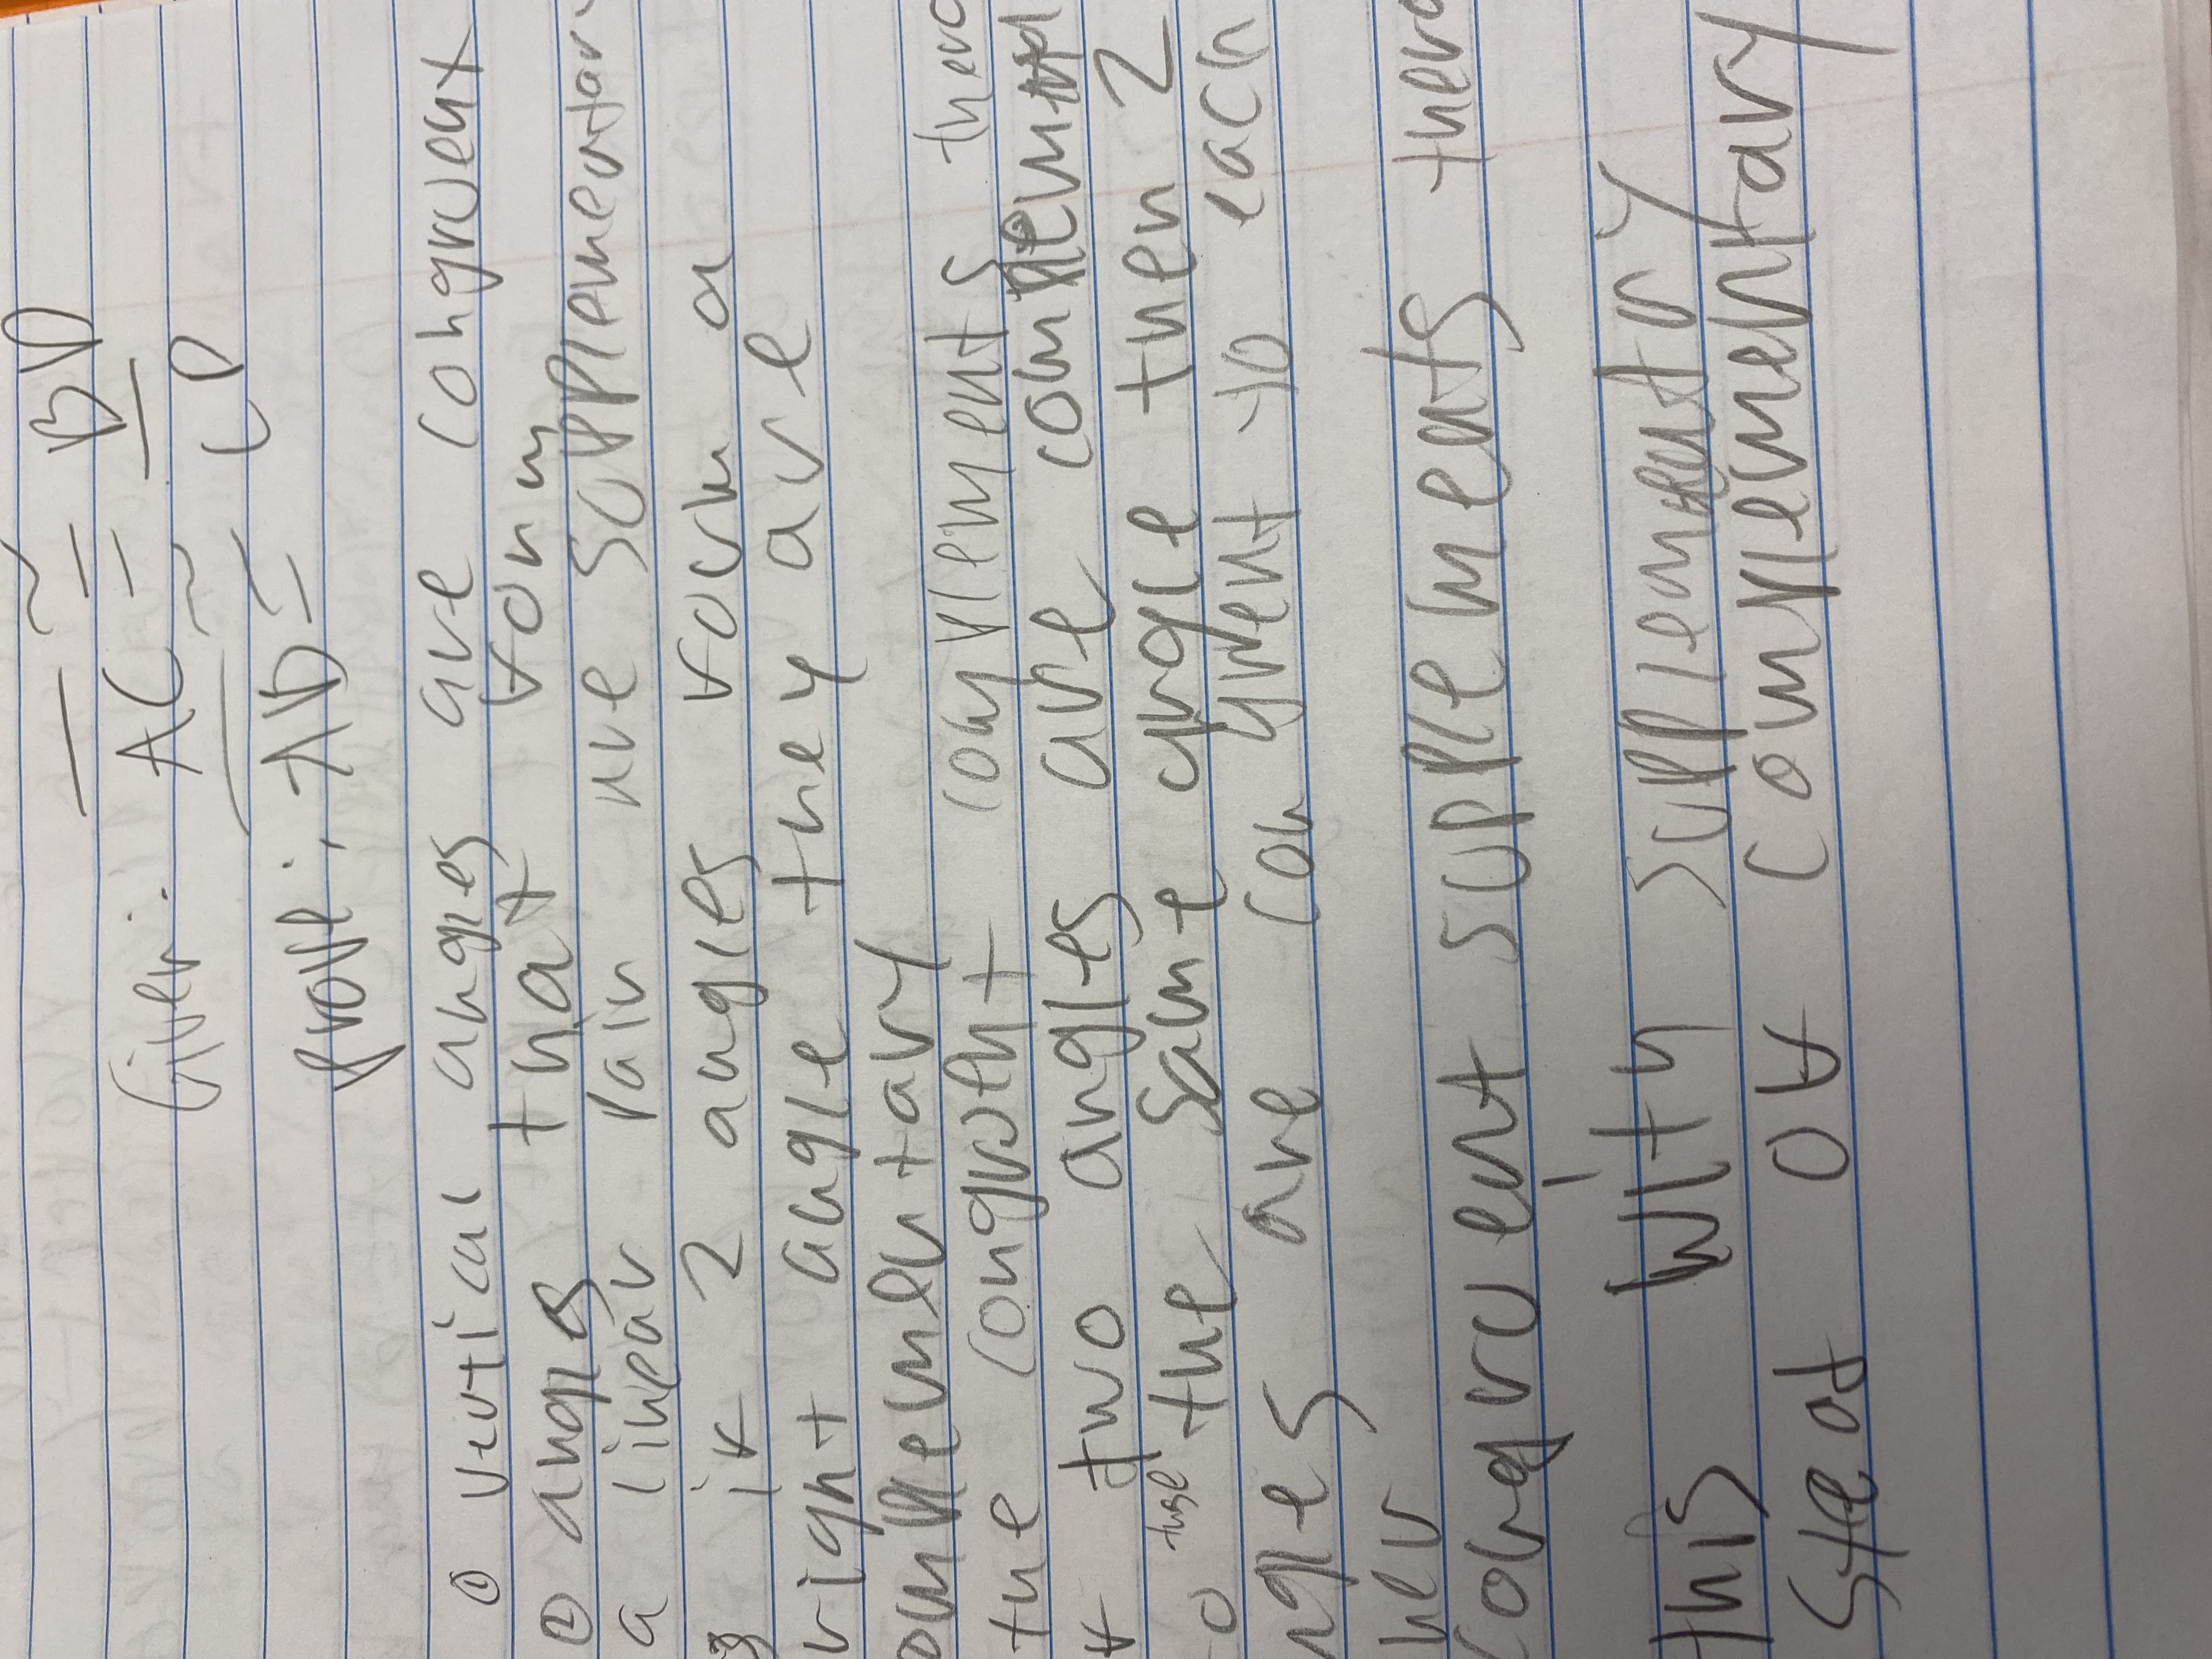 Given: AC ≅ BD
Prove: AB ≅ CD
① vertical angles are congruent
② angles that form
a linear pair are supplementary
③ if 2 angles form a
right angle they are
omplementary
the congruent complements thero
f two angles are complement
o the same angle then 2
ngles are congruent to each
her
congruent supplements thero
this with supplementary
stead of complementary